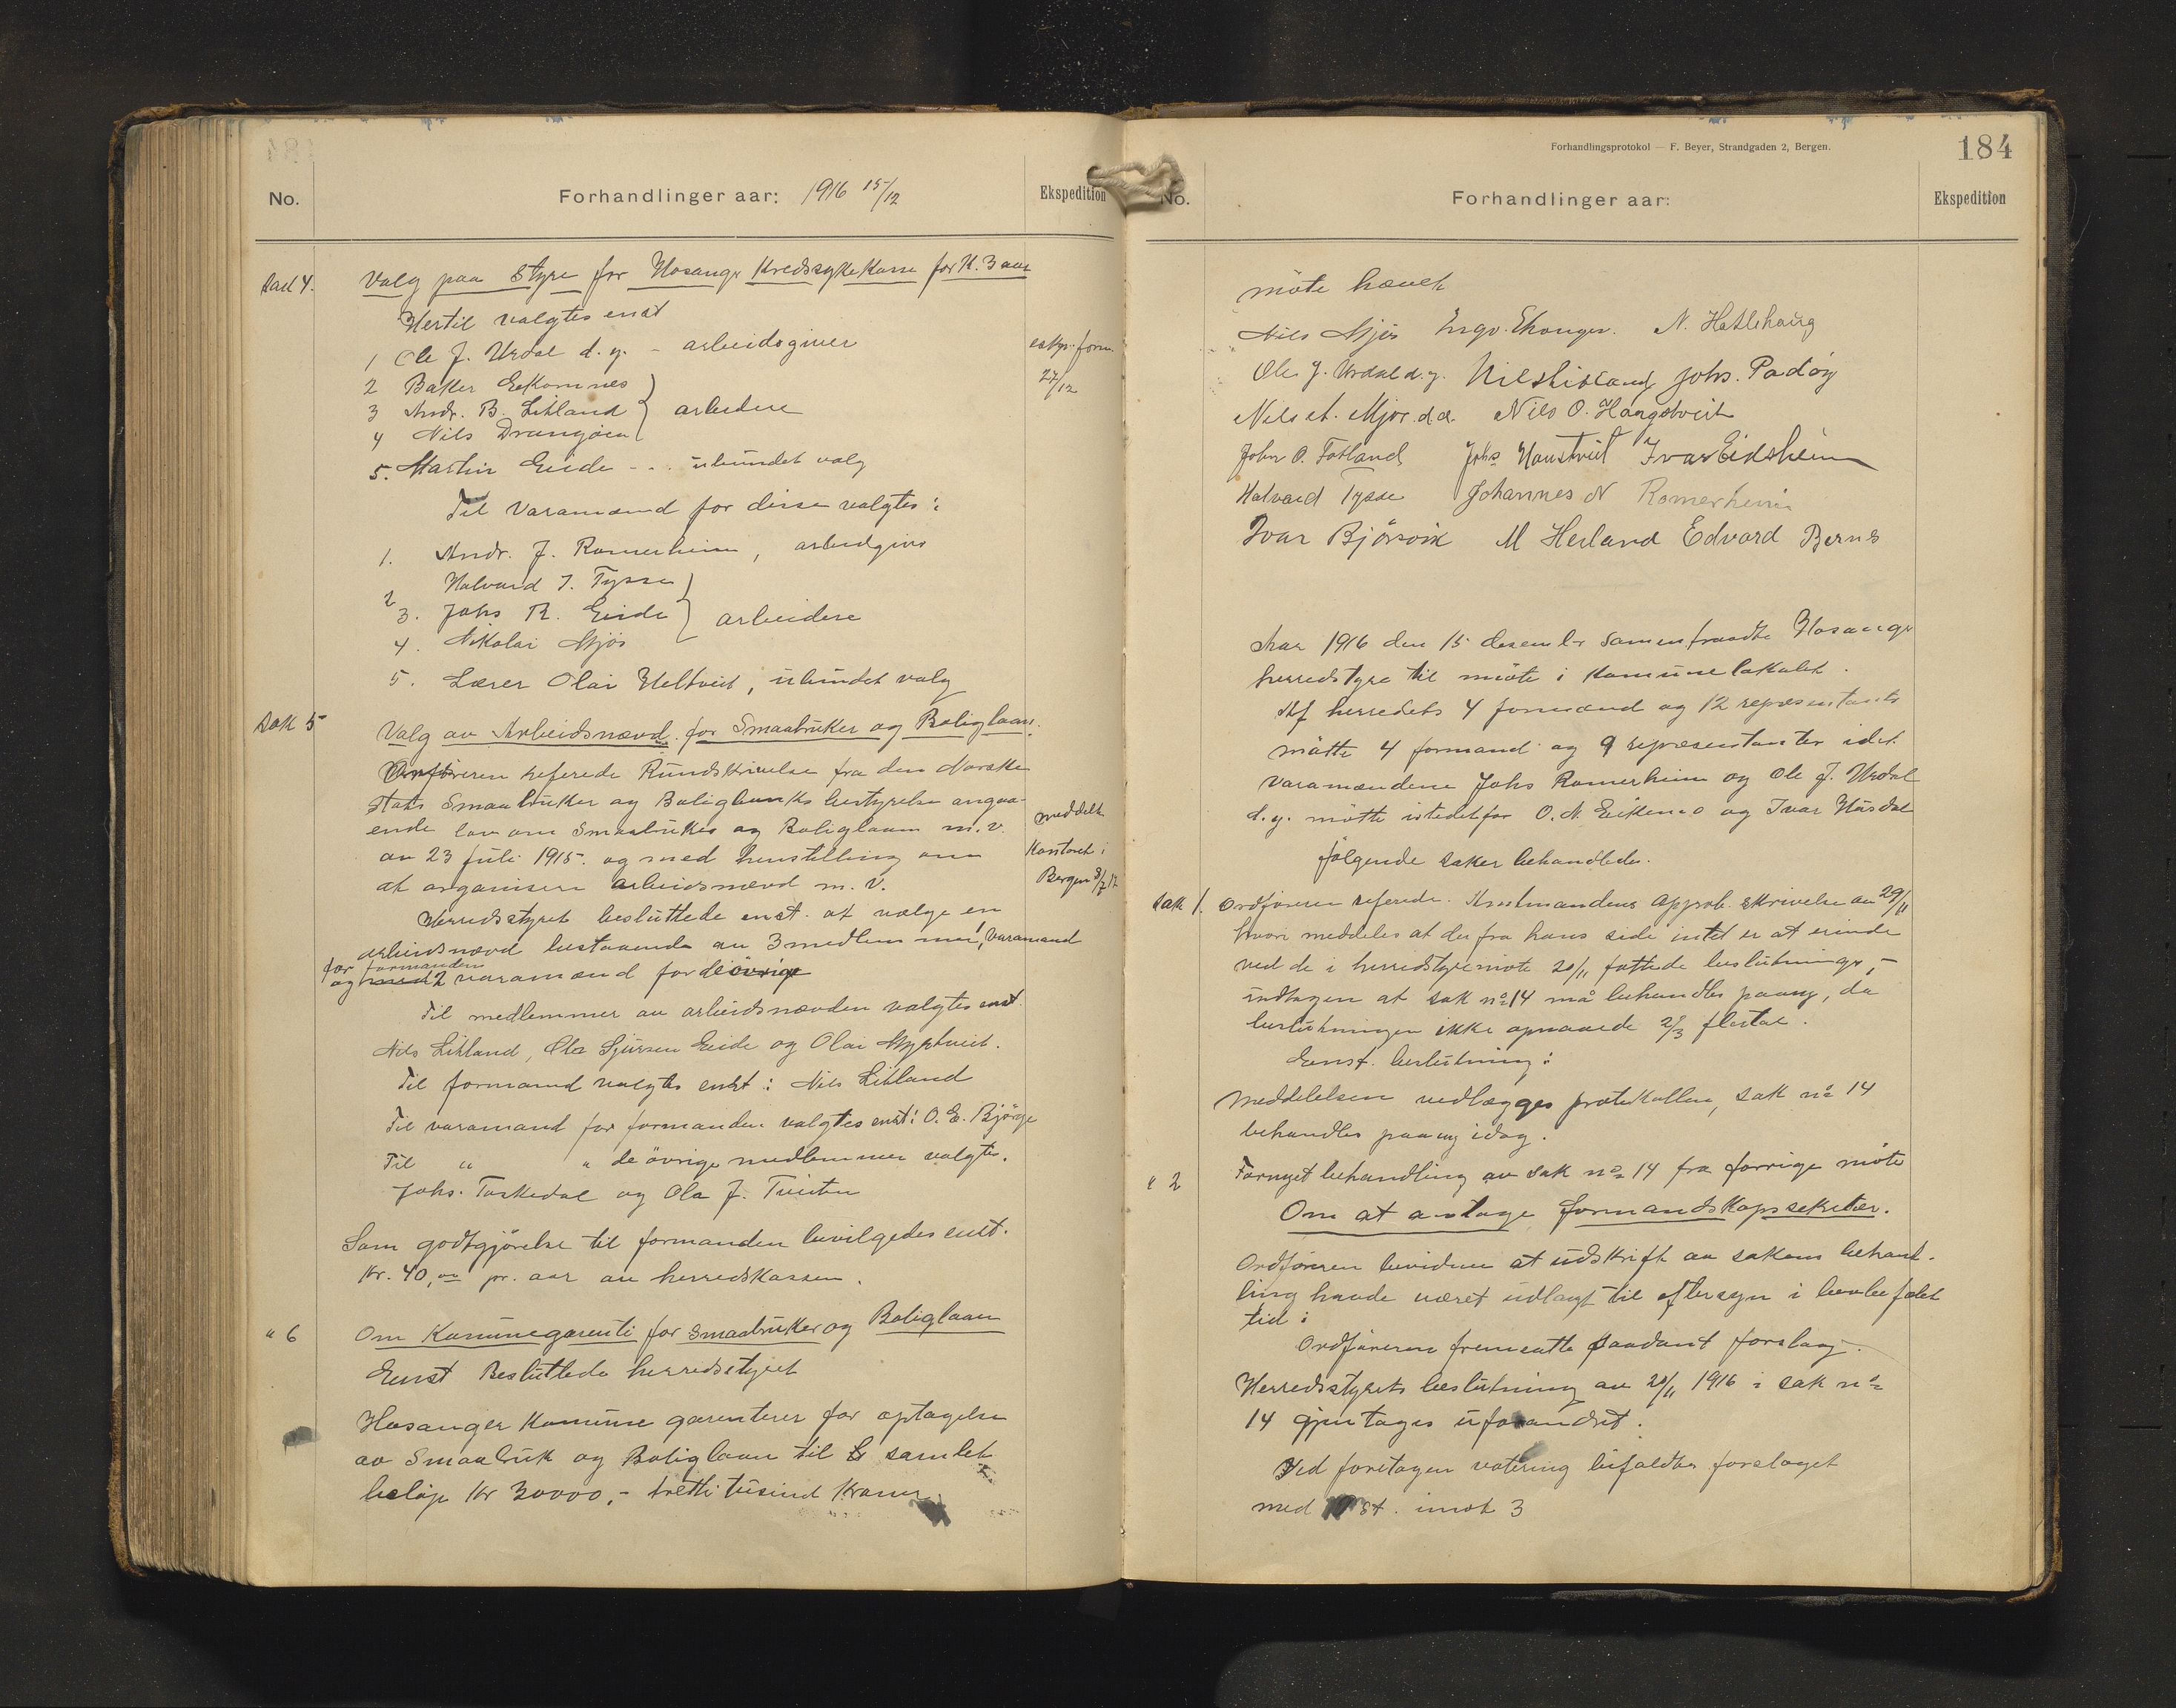 No.
Forhandlinger aar: 1916 15/12
Ekspedition
Sak 4.
Valg paa Styre for Hosanger Kredssykekasse for K. 3 aar
Hertil valgtes enst
1 Ole J. Urdal d. y. - arbeidsgiver
eksp. form.
27/12
2 Baker Eikemnes
3 Andr. B. Litland } arbeidere
4 Nils Drangøen
5. Martin Eide - .. ubundet valg
Til Varamænd for disse valgtes:
1. Andr. J. Romerheim, arbeidgiver
2 Halvard J. Tysse
3. Johs R. Eide } arbeidere
4. Nikolai Mjøs
5. Lærer Olai Heltveit, ubundet valg
Sak 5
Valg av Arbeidsnævd for Smaabruker og Boliglaan.
Ordføreren referede Rundskrivelse fra den Norske
Stats Smaabruker og Boligbanks bestyrelse angaa-
ende lov om Smaabruker og Boliglaan m.v.
av 23 juli 1915. og med henstilling om
at organisere arbeidsnævd m.v.
meddelt
Kontoret i
Bergen 3/7 17
Herredsstyret besluttede enst. at vælge en
arbeidsnævd bestaaende av 3 medlemmer, varamand
for formanden
og med 2 varamænd for de øvrige
Til medlemmer av arbeidsnævden valgtes enst.
Nils Litland, Ola Sjursen Eide og Olai Myrtveit.
Til formand valgtes enst: Nils Litland
Til varamand for formanden valgtes enst: O. E. Bjørge
Til " " de øvrige medlemmer valgtes.
Johs. Toskedal og Ola J. Tveiten
Som godtgjørelse til formanden bevilgedes enst.
Kr. 40,00 pr. aar av herredskassen.
" 6
Om Kommunegaranti for smaabruker og Boliglaan
Enst Besluttede herredsstyret
Hosanger Kommune garanterer for optagelse
av Smaabruk og Boliglaan til et samlet
beløp Kr 30000,- tretti tusind Kroner.
Forhandlingsprotokol — F. Beyer, Strandgaden 2, Bergen.
184
No.
Forhandlinger aar:
Ekspedition
møte hævet
Nils Mjøs Ingv. Ekanger. N. Hatlehaug
Ole J. Urdal d. y. Nils Litland Johs. Padøy
Nils A. Mjøs d.æ. Nils O. Haugstveit
John O. Fotland Johs Haustveit Ivar Eidsheim
Halvard Tysse Johannes N Romerheim
Ivar Bjørsvik M Herland Edvard Bernes
Aar 1916 den 15 desember samenfraadte Hosanger
herredstyre til møte i Komunelokalet.
Af herredets 4 formænd og 12 representanter
møtte 4 formænd og 9 representanter idet
varamændene Johs Romerheim og Ole J. Urdal
d.y. møtte istedetfor O. N. Eikemo og Ivar Håsdal
følgende saker behandledes.
Sak 1.
Ordføreren referede. Amtmandens Approb. skrivelse av 29/11
hvori meddeles at der fra hans side intet er at erindre
ved de i herredstyremøte 20/11 fattede beslutninger, -
indtagen at sak no 14 må behandles paany, da
beslutningen ikke opnaaede 2/3 flertal.
Eenst. beslutning:
Meddelelsen vedlægges protokollen, sak no 14
behandles paany idag.
" 2
Fornyet behandling av sak no 14 fra forrige møte
Om at antage formandskapssekretær.
Ordføreren bevidnee at udskrift av sakens behand-
ling havde været udlagt til eftersyn i lovbefalet
tid:
Ordføreren fremsatte saadant forslag.
Herredsstyrets beslutning av 20/11 1916 i sak no
14 gjentages uforandret.
Ved foretagen votering bifaldtes forslaget
med 10 st. imot 3